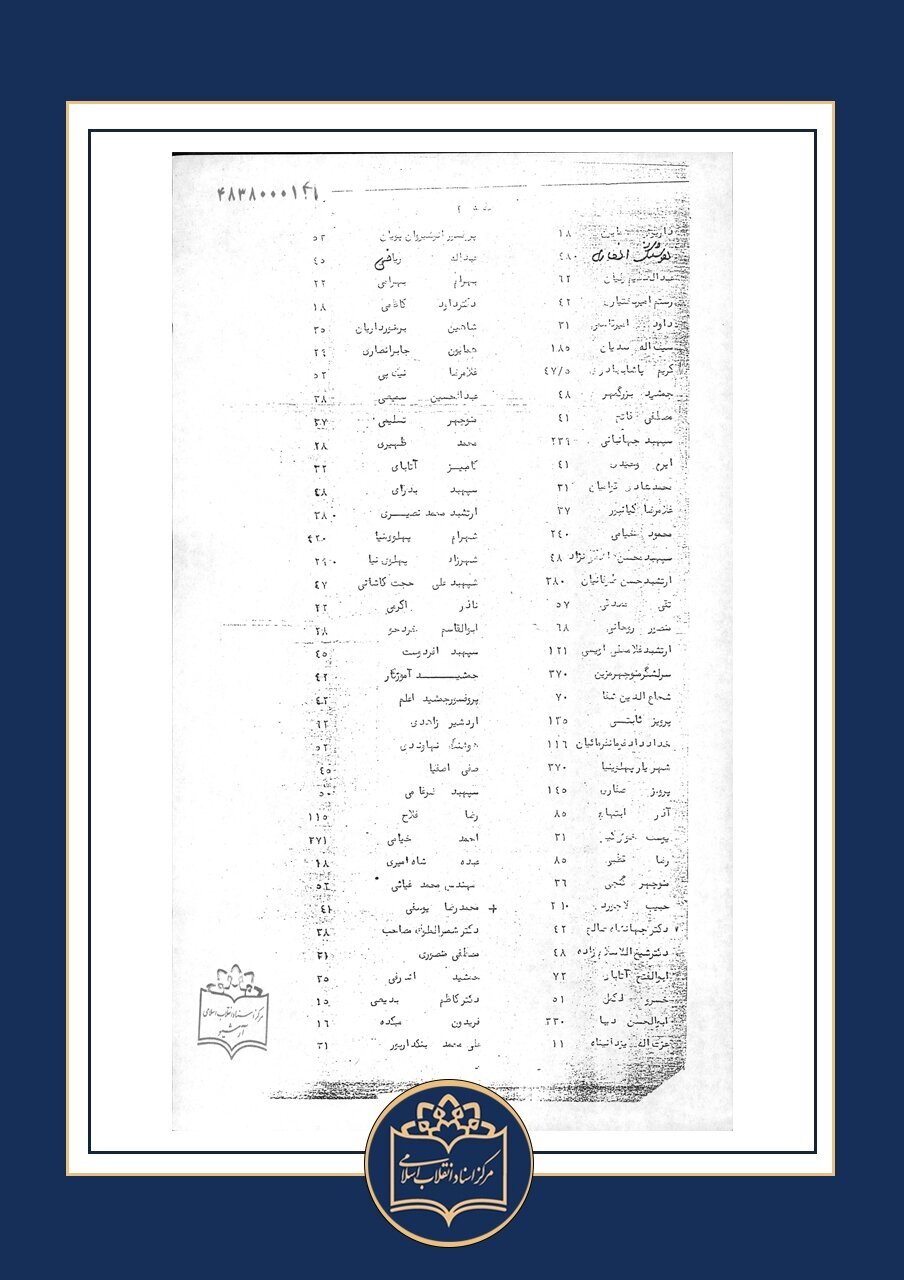 ۴۸۳۸۰۰۰۱۴۱
صفحه ۲
داریوش همایون ۱۸
هوشنگ انصاری ۴۸۰
۶۲
رستم امیربختیار ۴۲
داود ۳۱
سیف‌اله ۱۸۵
کریم پاشابهادری ۴۷/۵
جمشید بزرگمهر ۴۸
مصطفی فاتح ۴۱
سپهبد جهانبانی ۲۳۹
ایرج وحیدی ۴۱
۳۱
غلامرضا کیانپور ۳۷
محمود خیامی ۲۴۰
سپهبد محسن نژاد ۴۸
ارتشبد حسن طوفانیان ۲۸۰
تقی ۵۷
منصور روحانی ۶۸
ارتشبد غلامعلی اویسی ۱۲۱
سرلشگر منوچهر مزین ۳۷۰
شجاع الدین شفا ۷۰
پرویز ثابتی ۱۳۵
خداداد فرمانفرمائیان ۱۱۶
شهریار پهلوی‌نیا ۳۷۰
پرویز ۱۴۵
آذر ابتهاج ۸۵
یوسف خوش‌کیش ۲۱
رضا قطبی ۸۵
منوچهر گنجی ۳۶
حبیب لاجوردی ۲۱۰
دکتر جهانشاه صالح ۴۲
دکتر شیخ‌الاسلام زاده ۴۸
ابوالفتح آتابای ۷۲
خسرو ۵۱
ابوالحسن دیبا ۳۳۰
عزت‌اله یزدانپناه ۱۱
پرفسور انوشیروان پویان ۵۲
عبداله ریاضی ۴۵
بهرام بهرامی ۲۲
دکتر داود کاظمی ۱۸
شاهین برخورداریان ۳۵
همایون جابرانصاری ۲۴
غلامرضا نیک‌پی ۵۲
عبدالحسین سمیعی ۳۸
منوچهر تسلیمی ۳۷
محمد ظهیری ۲۸
کامبیز آتابای ۳۲
سپهبد بدره‌ای ۴۸
ارتشبد محمد نصیری ۳۸۰
شهرام پهلوی‌نیا ۴۲۰
شهرزاد پهلوی نیا ۲۹۰
سپهبد علی حجت کاشانی ۴۷
نادر اکرمی ۲۲
ابوالقاسم خردجو ۲۸
سپهبد فردوست ۴۵
جمشید آموزگار ۴۲
پروفسور جمشید اعلم ۴۲
اردشیر زاهدی ۹۲
هوشنگ نهاوندی ۵۲
صفی اصفیا ۴۵
سپهبد ضرغامی ۵۰
رضا فلاح ۱۱۵
احمد خیامی ۲۷۱
عبده شاه امیری ۱۸
مهندس محمد غیاثی ۵۲
+ محمدرضا یوسفی ۴۱
دکتر شمس‌الملوک مصاحب ۳۸
مصطفی منصوری ۲۱
جمشید اشرفی ۳۵
دکتر کاظم بدیعی ۱۵
فریدون میکده ۱۶
علی محمد بنکدارپور ۳۱
مرکز اسناد انقلاب اسلامی
آرشیو
مرکز اسناد انقلاب اسلامی